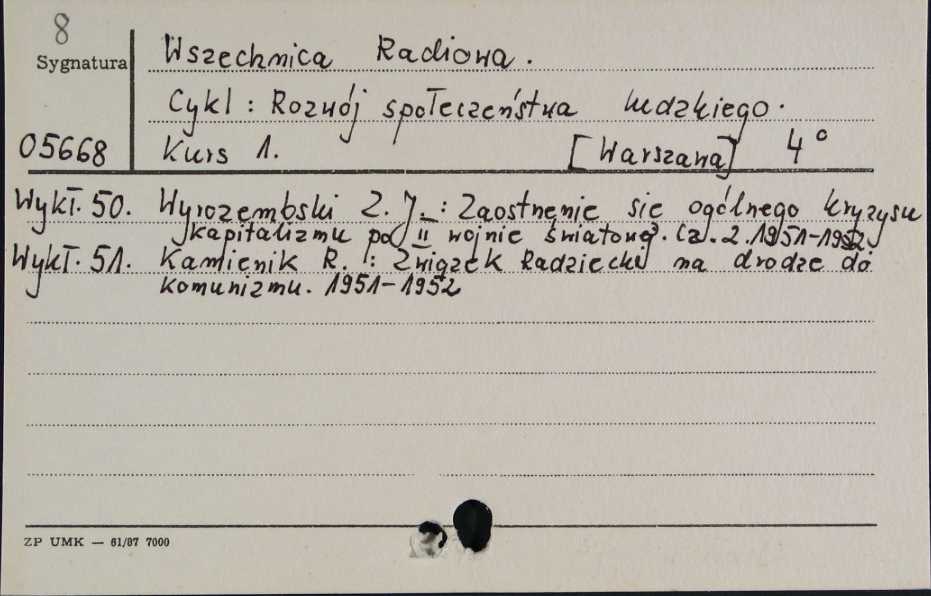 8
Sygnatura
Wszechnica Radiowa.
Cykl : Rozwój społeczeństwa ludzkiego.
05668 Kurs 1. [Warszawa] 4°
Wykł. 50. Wyrozembski Z. J. : Zaostrzenie się ogólnego kryzysu
kapitalizmu po II wojnie światowej. Cz. 2. 1951-1952
Wykł. 51. Kamienik R. : Związek Radziecki na drodze do
komunizmu. 1951-1952
ZP UMK — 61/67 7000